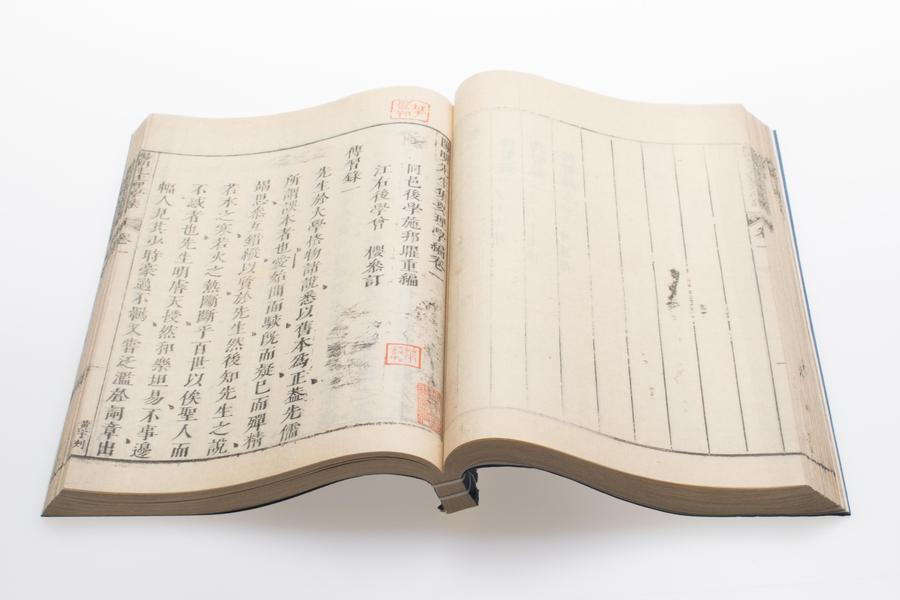 陽明先生集要理學編卷一
同邑後學施邦曜重編
江右後學曾　櫻叅訂
傳習錄一
先生於大學格物諸說悉以舊本爲正蓋先儒
所謂誤本者也愛始聞而駭旣而疑已而殫精
竭思叅互錯縱以質於先生然後知先生之說
若水之寒若火之熱斷斷乎百世以俟聖人而
不惑者也先生明睿天授然和樂坦易不事邊
幅人見其少時豪邁不羈又嘗泛濫於詞章出